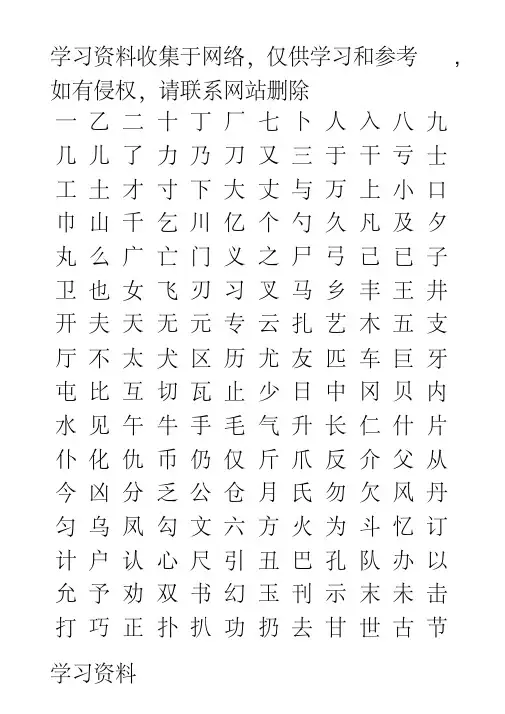 学习资料收集于网络，仅供学习和参考，
如有侵权，请联系网站删除
一 乙 二 十 丁 厂 七 卜 人 入 八 九
几 儿 了 力 乃 刀 又 三 于 干 亏 士
工 土 才 寸 下 大 丈 与 万 上 小 口
巾 山 千 乞 川 亿 个 勺 久 凡 及 夕
丸 么 广 亡 门 义 之 尸 弓 己 已 子
卫 也 女 飞 刃 习 叉 马 乡 丰 王 井
开 夫 天 无 元 专 云 扎 艺 木 五 支
厅 不 太 犬 区 历 尤 友 匹 车 巨 牙
屯 比 互 切 瓦 止 少 日 中 冈 贝 内
水 见 午 牛 手 毛 气 升 长 仁 什 片
仆 化 仇 币 仍 仅 斤 爪 反 介 父 从
今 凶 分 乏 公 仓 月 氏 勿 欠 风 丹
匀 乌 凤 勾 文 六 方 火 为 斗 忆 订
计 户 认 心 尺 引 丑 巴 孔 队 办 以
允 予 劝 双 书 幻 玉 刊 示 末 未 击
打 巧 正 扑 扒 功 扔 去 甘 世 古 节
学习资料